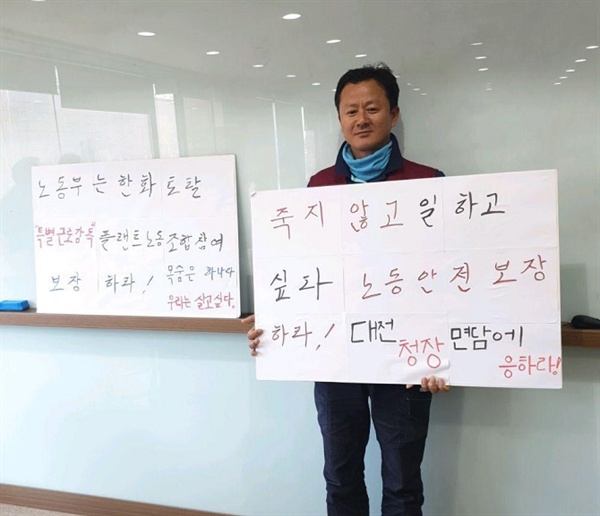 노동부는 한화토탈
"특별근로감독" 플랜트노동조합참여
보장하라! 목숨은 하나다
우리는 살고싶다.
죽지 않고 일하고
싶다 노동안전 보장
하라! 대전청장 면담에
응하라!